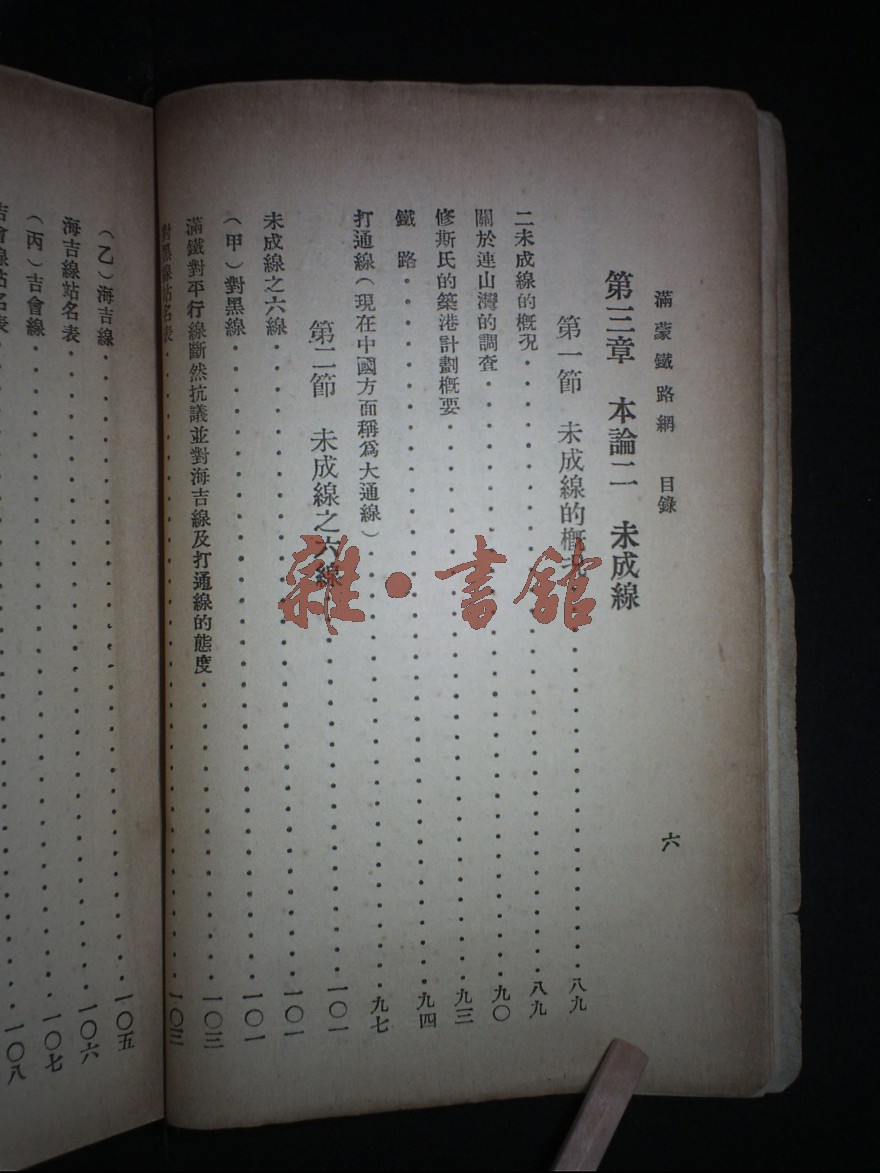 滿蒙鐵路網 目錄 六
第三章 本論二 未成線
第一節 未成線的概況 八九
二未成線的概況 八九
關於連山灣的調查 九〇
修斯氏的築港計劃概要 九三
鐵路 九四
打通線（現在中國方面稱爲大通線） 九七
第二節 未成線之六線 一〇一
未成線之六線 一〇一
（甲）對黑線 一〇一
滿鐵對平行線斷然抗議並對海吉線及打通線的態度 一〇三
對黑線站名表 一〇三
（乙）海吉線 一〇五
海吉線站名表 一〇六
（丙）吉會線 一〇七
吉會線站名表 一〇八
雜·書館